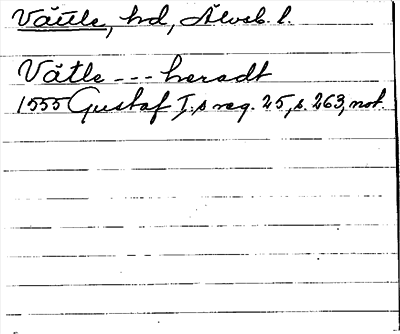 Vättle, hd, Älvsb. l.
Vätle --- heradt
1555 Gustaf I,s reg. 25, s. 263, not.